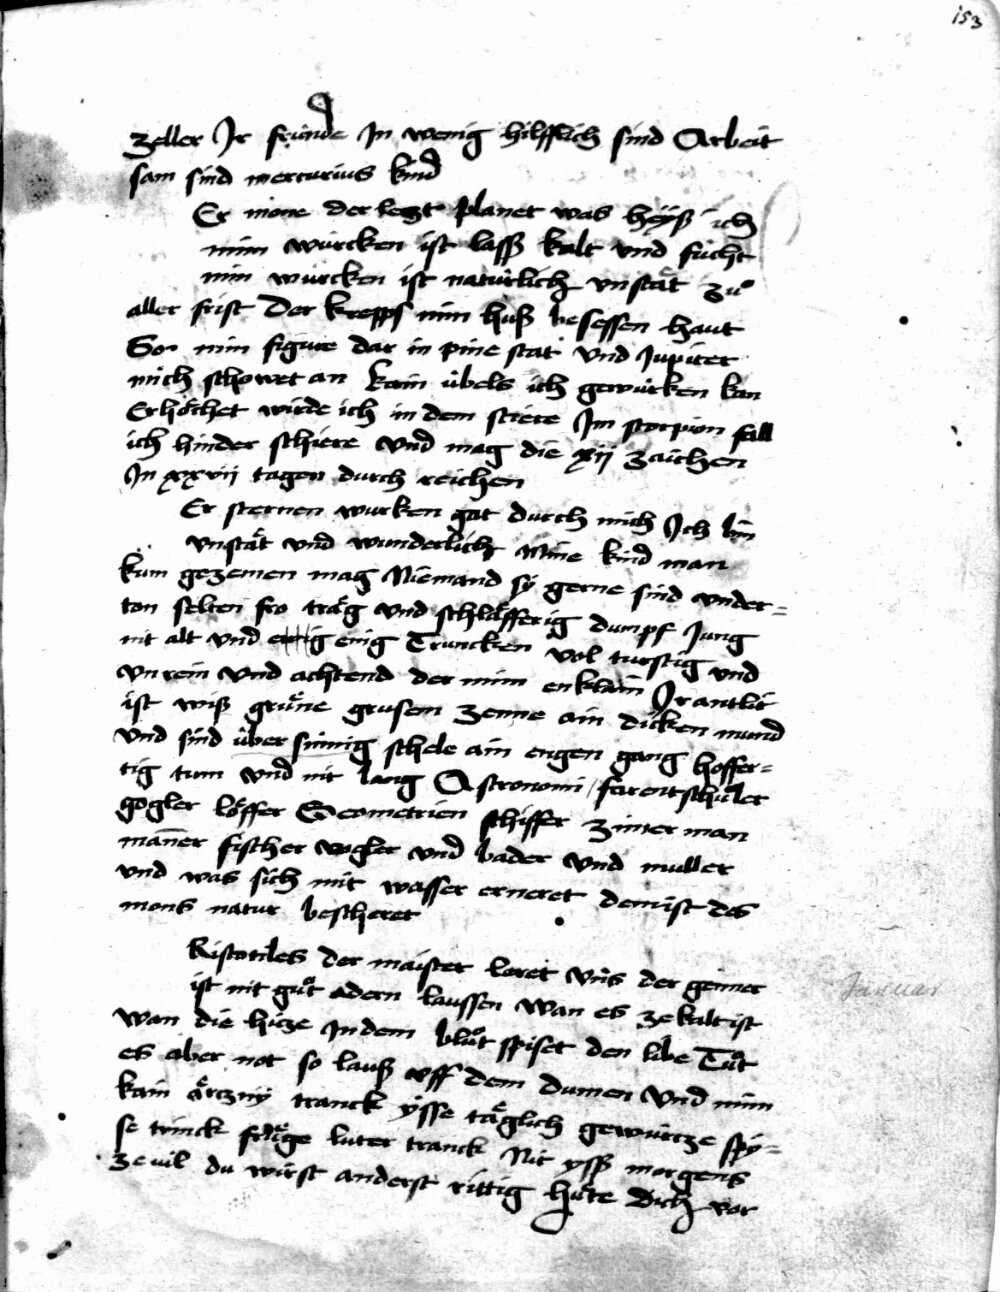 153
zeller Jr frúnde Jn wenig hilfflich sind Arbeit
sam sind mercurius kind
Er mone der letzt planet was heyß ich
min würcken ist laſß kalt vnd fúcht
min würcken ist natúrlich vnstät zů
aller frist Der krepps min huß besessen haut
So min figure dar in pine stat vnd Jupiter
mich schowet an kain úbels ich gewúrken kan
Erhöchet wirde ich in dem stiere Jm scorpion fall
ich hinder schiere vnd mag die xij zaichen
Jn xxvij tagen durch reichen
Er sternen wurken gat durch mich Jch bin
vnstät vnd wunderlich Mine kind man
kum gezemen mag Niemand sy gerne sind vnder=
ton selten fro träg vnd schläfferig dumpf Jung
nit alt vnd enig Truncken vol turstig vnd
vnrein vnd achtend der mim enklain Jr antlit
ist wiß grüne grusem zenne ain dicken mund
vnd sind úbersinnig schele ain engen gang hoffer=
tig tum vnd nit lang Astronomi / farentschůler
gogler löffer Geometrien schiffer zinter man
maner fischer vogler vnd bader vnd muller
vnd was sich mit wasser erneret dem ist des
mons natur bescheret
Ristotiles der maister leret vns der genner
ist nit gůt adern laussen wan es ze kalt ist
wan die hicze Jn dem blůt spiset den libe Tůt
es aber not so lauß vff dem dumen vnd nim
kain ärczny tranck ysse täglich gewúrcze spy=
se trinck frúge luter tranck Nit yss morgens
ze vil du wirst anderst rittig hůte dich vor
Januar